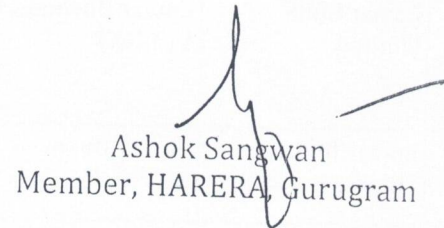 Ashok Sangwan
Member, HARERA, Gurugram